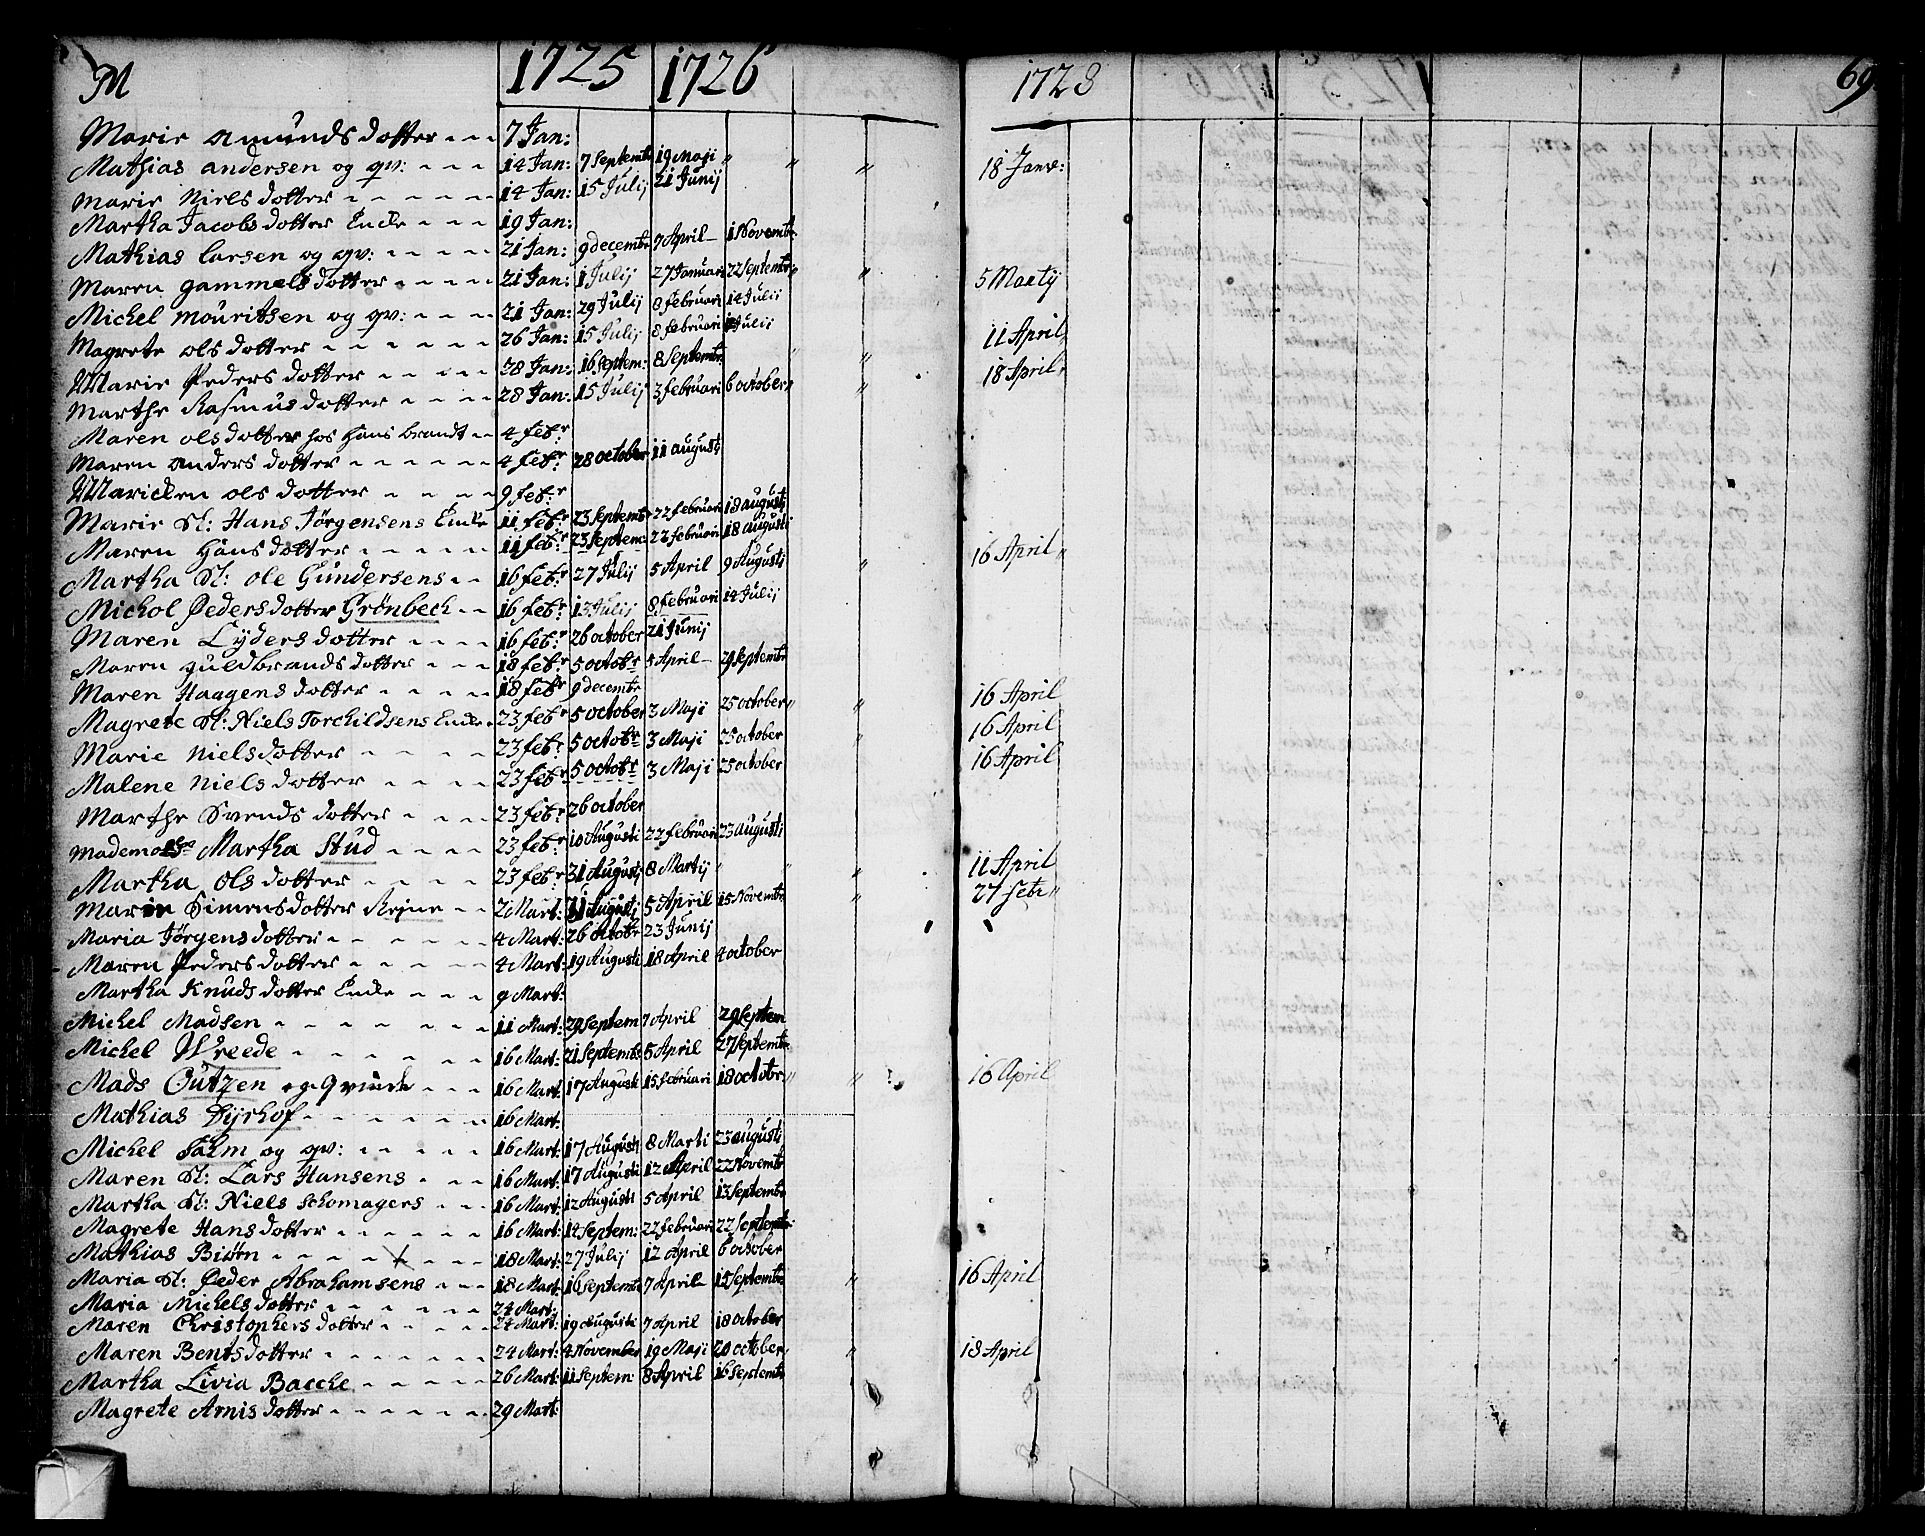 M 1725 1726 1728 69
Marie Amunds dotter 7 Jan:
Mathias Andersen og qv: 14 Jan: 7 Septembr 19 Maji " " " 18 Janv:
Marie Niels dotter 14 Jan: 15 Julij 21 Junij
Martha Jacobs dotter Encke 19 Jan:
Mathias Larsen og qv: 21 Jan: 9 decembr 7 April 1 Novembr
Maren gammels dotter 21 Jan: 1 Julij 27 Januari 22 Septembr " " 5 Martij
Michel Mouritsen og qv: 21 Jan: 29 Julij 8 februari 14 Julij
Magrete ols dotter 26 Jan: 15 Julij 8 februari Julij 11 April
Marie Peders dotter 28 Jan: 16 Septem: 8 Septembr " " 18 April
Marthe Rasmus dotter 28 Jan: 15 Julij 3 februari 6 october " "
Maren ols dotter hos Hans brandt 4 febr
Maren Anders dotter 4 febr 28 october 11 augusti
Maricken ols dotter 9 febr
Marie Sl: Hans Jörgensens Encke 11 febr 23 Septembr 22 februari 18 augusti
Maren Hans dotter 11 febr 23 Septem: 22 februari 18 augusti
Martha Sl: Ole Gundersens 16 febr 27 Julij 5 April 9 Augusti " 16 April "
Michol Peders dotter Grönbech 16 febr 13 Julij 8 februari 14 Julij
Maren Lyders dotter 16 febr 26 october 21 Junij
Maren guldbrands dotter 18 febr 5 octobr 5 April 29 Septembr
Maren Haagens dotter 18 febr 9 decembr
Magrete Sl: Niels Torchildsens Encke 23 febr 5 october 3 Maji 25 october " " 16 April
Marie Niels dotter 23 febr 5 octobr 3 Maji 25 october " 16 April
Malene Niels dotter 23 febr 5 octobr 3 Maji 25 october 16 April
Marthe Svends dotter 23 febr 26 october
Mademoise Martha Stud 23 febr 10 Augusti 22 februari 23 augusti
Martha Ols dotter 23 febr 31 Augusti 8 Martij " " " 11 April
Maren Simens dotter Rejne 2 Mart: 11 Augusti 5 April 15 Novembr " 27 febr "
Maria Jörgens dotter 4 Mart: 26 octobr 23 Junij
Maren Peders dotter 4 Mart: 19 Augusti 18 April 4 october
Martha Knuds dotter Encke 9 Mart:
Michel Madsen 11 Mart: 29 Septem 7 April 29 Septem
Michel Wreede 16 Mart: 21 Septembr 5 April 27 Septembr
Mads Outzen og Qvinde 16 Mart: 17 Augusti 15 februari 18 octobr " " 16 April
Mathias Dyrhof 16 Mart:
Michel Salm og qv: 16 Mart: 17 Augusti 8 Marti 23 augusti
Maren Sl: Lars Hansens 16 Mart: 17 Augusti 12 April 22 Novembr
Martha Sl: Niels Schomagers 16 Mart: 12 Augusti 5 April 13 Septembr
Magrete Hans dotter 16 Mart: 12 Septem: 22 februari 22 Septembr
Mathias Biörn 18 Mart: 27 Julij 12 April 6 october
Maria Sl: Peder Abrahamsens 18 Mart: 16 Septembr 7 April 15 Septembr " 16 April
Maria Michels dotter 24 Mart:
Maren Christophers dotter 24 Mart: 19 Augusti 7 April 18 october
Maren Bents dotter 24 Mart: 4 November 19 Maji 20 october " " 18 April
Martha Livia Bacche 26 Mart: 11 Septem: 8 April 16 Septembr
Magrete Arnis dotter 29 Mart: